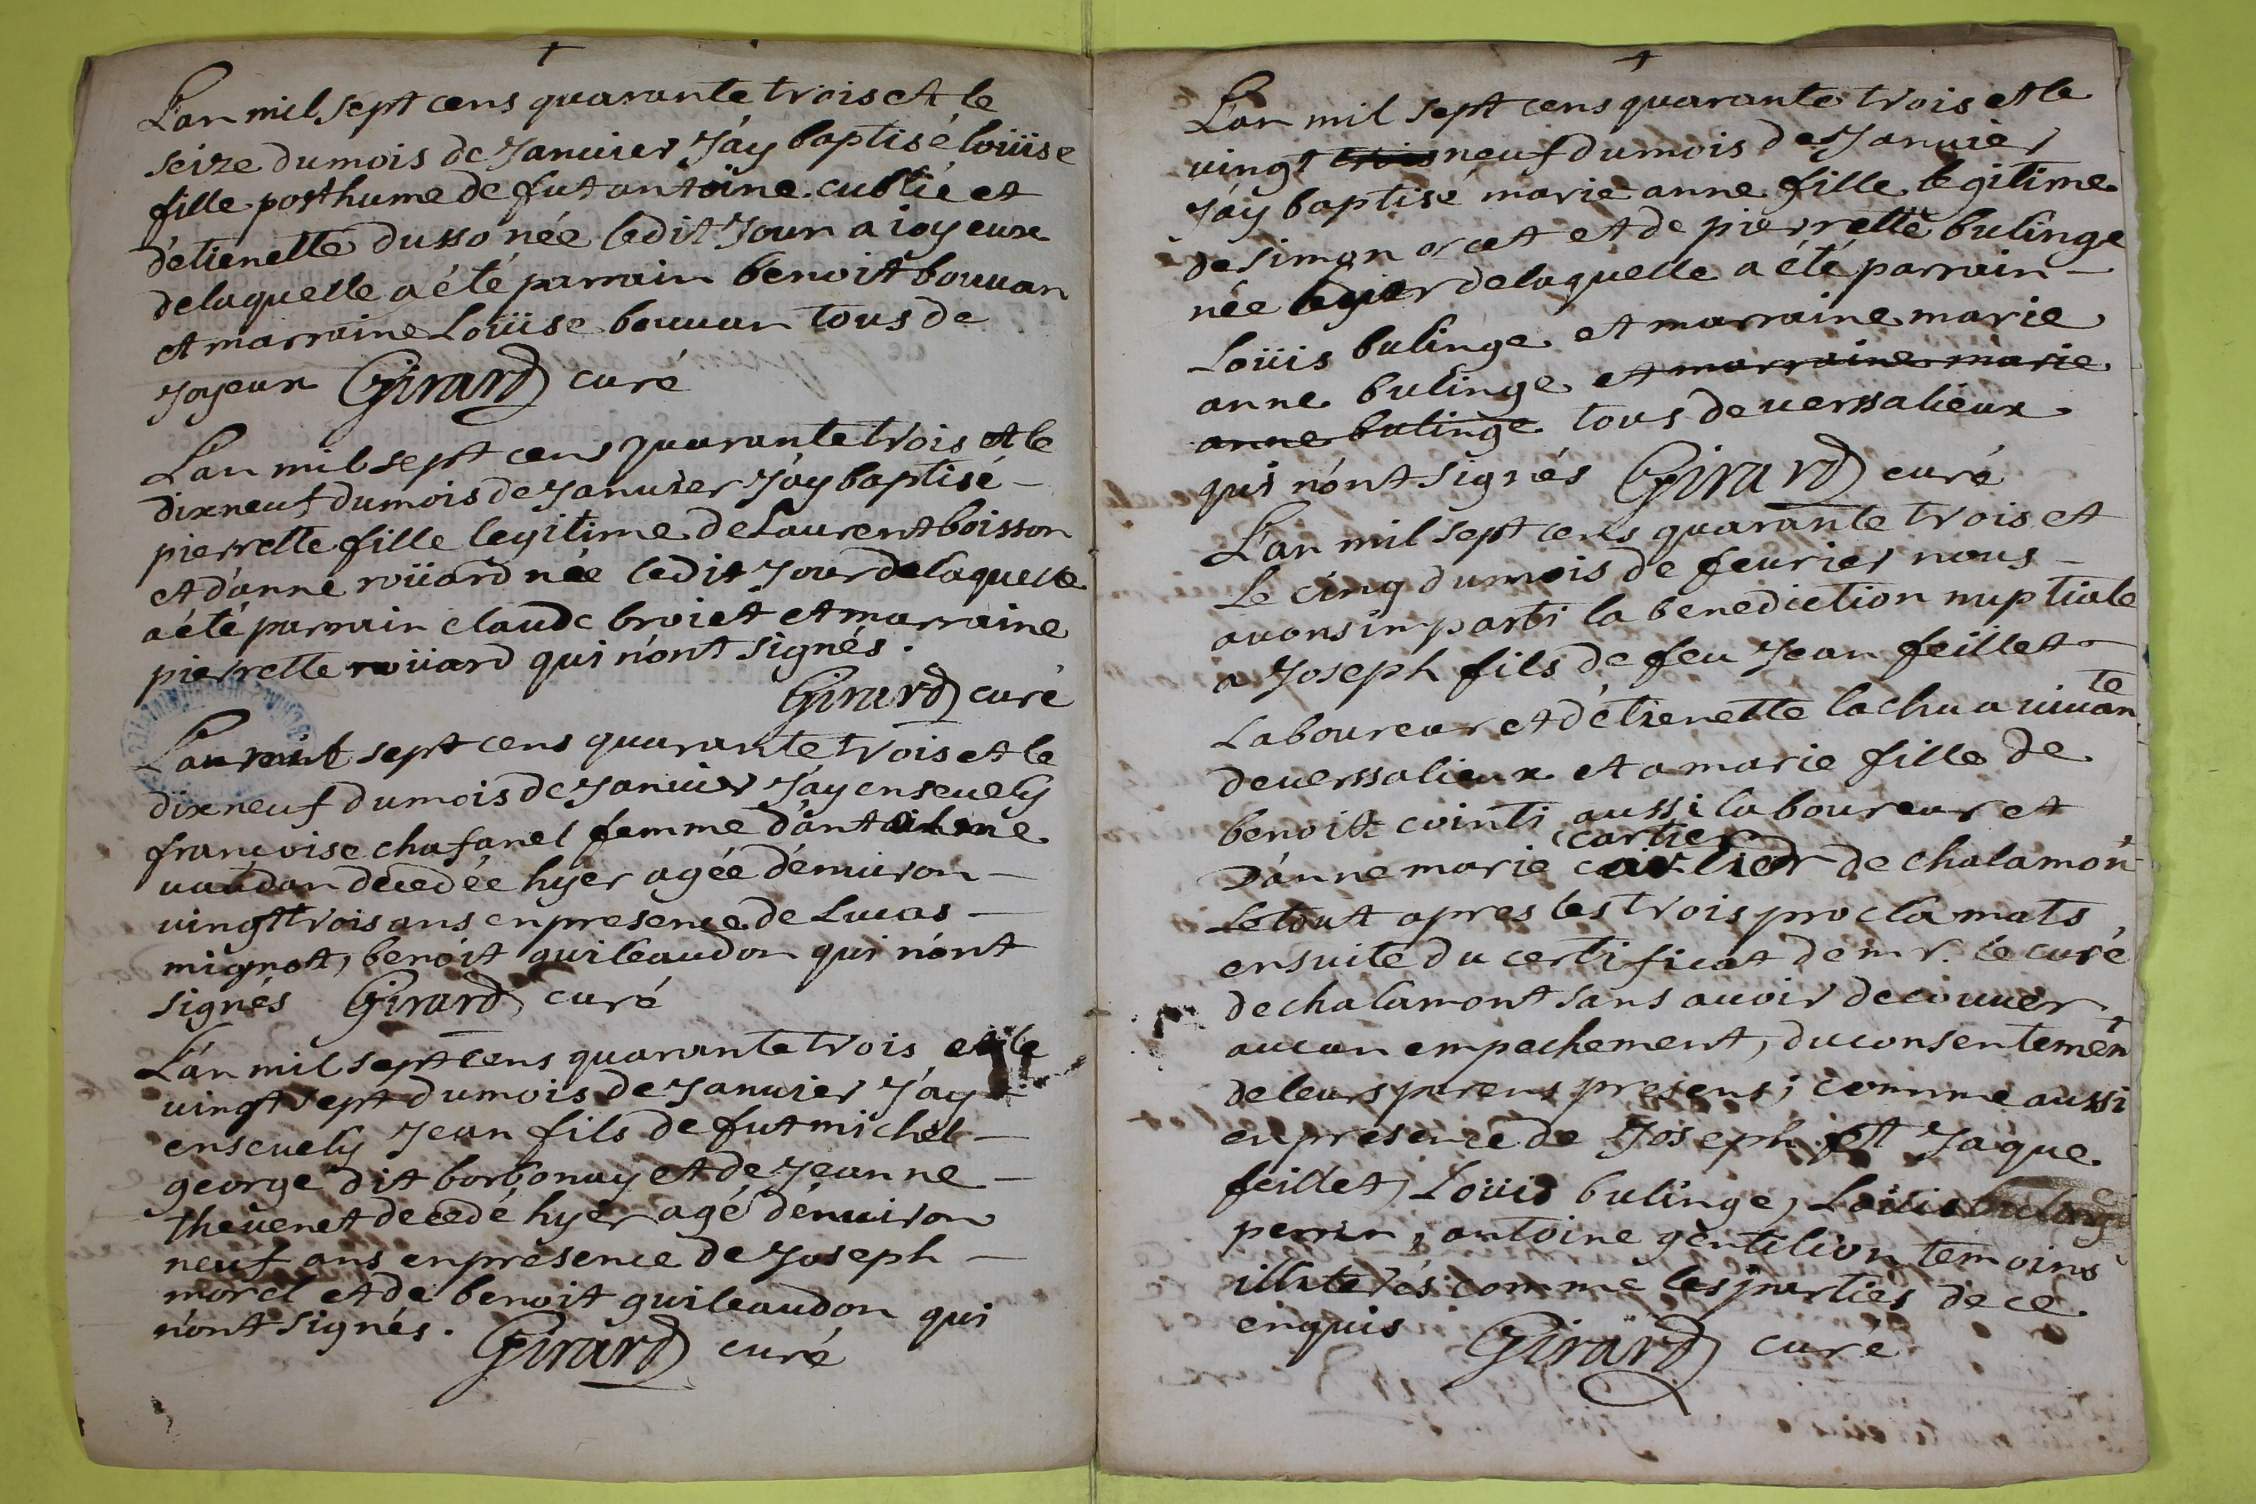 +
L'an mil sept cens quarante trois et le
seize du mois de Januier J'ay baptisé loüise
fille posthume de fut antoine cublié et
d'etienette dusso née ledit Jour a joyeux
delaquelle a été parrain benoist bouuan
et marraine Loüise bouuan tous de
Joyeux Girard curé
L'an mil sept cens quarante trois et le
dixneuf du mois de Januier J'ay baptisé
pierrette fille legitime de Laurent boisson
et d'anne roüard née ledit Jour delaquelle
a été parrain claude broiet et marraine
pierrette roüard qui n'ont signés.
Girard curé
L'an mil sept cens quarante trois et le
dixneuf du mois de Januier J'ay enseuely
francoise chafanel femme d'antoine
uaudan décedée hyer agée d'enuiron
uingt trois ans en presence de Lucas
mignot, benoit guileaudon qui n'ont
signés Girard curé
L'an mil sept cens quarante trois et le
uingt sept du mois de Januier J'ay
enseuely Jean fils de fut michel
george dit borbonay et de Jeanne
theuenet decedé hyer agé d'enuiron
neuf ans en presence de Joseph
morel et de benoit guileaudon qui
n'ont signés. Girard curé
+
L'an mil sept cens quarante trois et le
uingt trois neuf du mois de Januier
J'ay baptisé marie anne fille legitime
de simon orcet et de pierrette bulinge
née hyer delaquelle a été parrain
Loüis bulinge et marraine marie
anne bulinge et marraine marie
anne bulinge tous de uerssalieux
qui n'ont signés Girard curé
L'an mil sept cens quarante trois et
Le cinq du mois de feurier nous
auons imparti la benediction nuptiale
a Joseph fils de feu Jean feillet
Laboureur et d'etienette lachu a uiuante
de uerssalieux et a marie fille de
benoit cointi aussi laboureur et
D'anne marie cartier cartier de chalamon
Le tout apres les trois proclamats
ensuite du certificat de mr. le curé
de chalamont sans auoir decouuer
aucun empechement, du consentemen
de leurs parens presens; comme aussi
en presence de Joseph et Jaque
feillet, Loüis bulinge, Loüis
perrin, antoine gentilion temoins
illiterés comme les parties de ce
enquis Girard curé